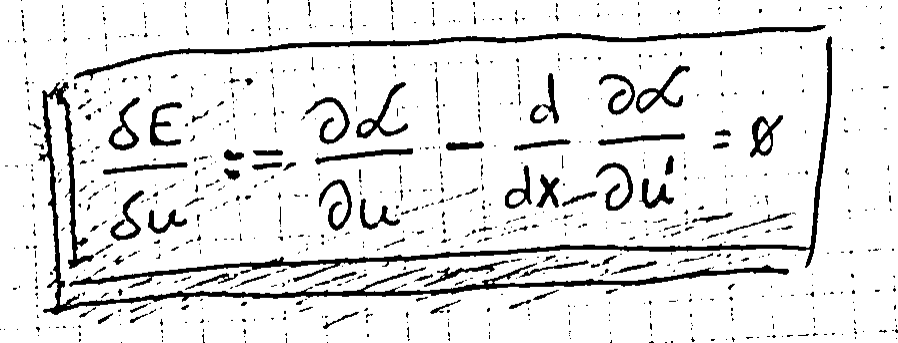 δE/δu := ∂ℒ/∂u - d/dx ∂ℒ/∂u' = 0